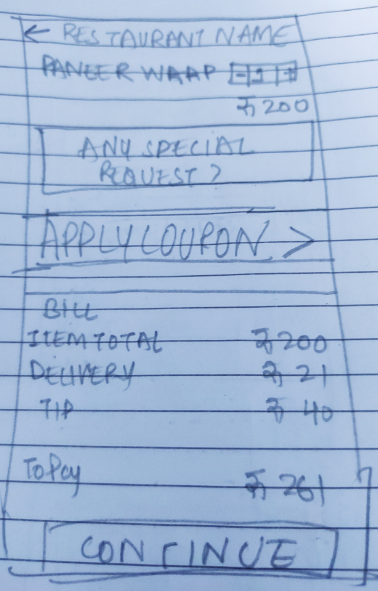 ← RESTAURANT NAME
PANEER WRAP - 1 +
₹ 200
ANY SPECIAL
REQUEST?
APPLY COUPON >
BILL
ITEM TOTAL ₹ 200
DELIVERY ₹ 21
TIP ₹ 40
To Pay ₹ 261
CONTINUE